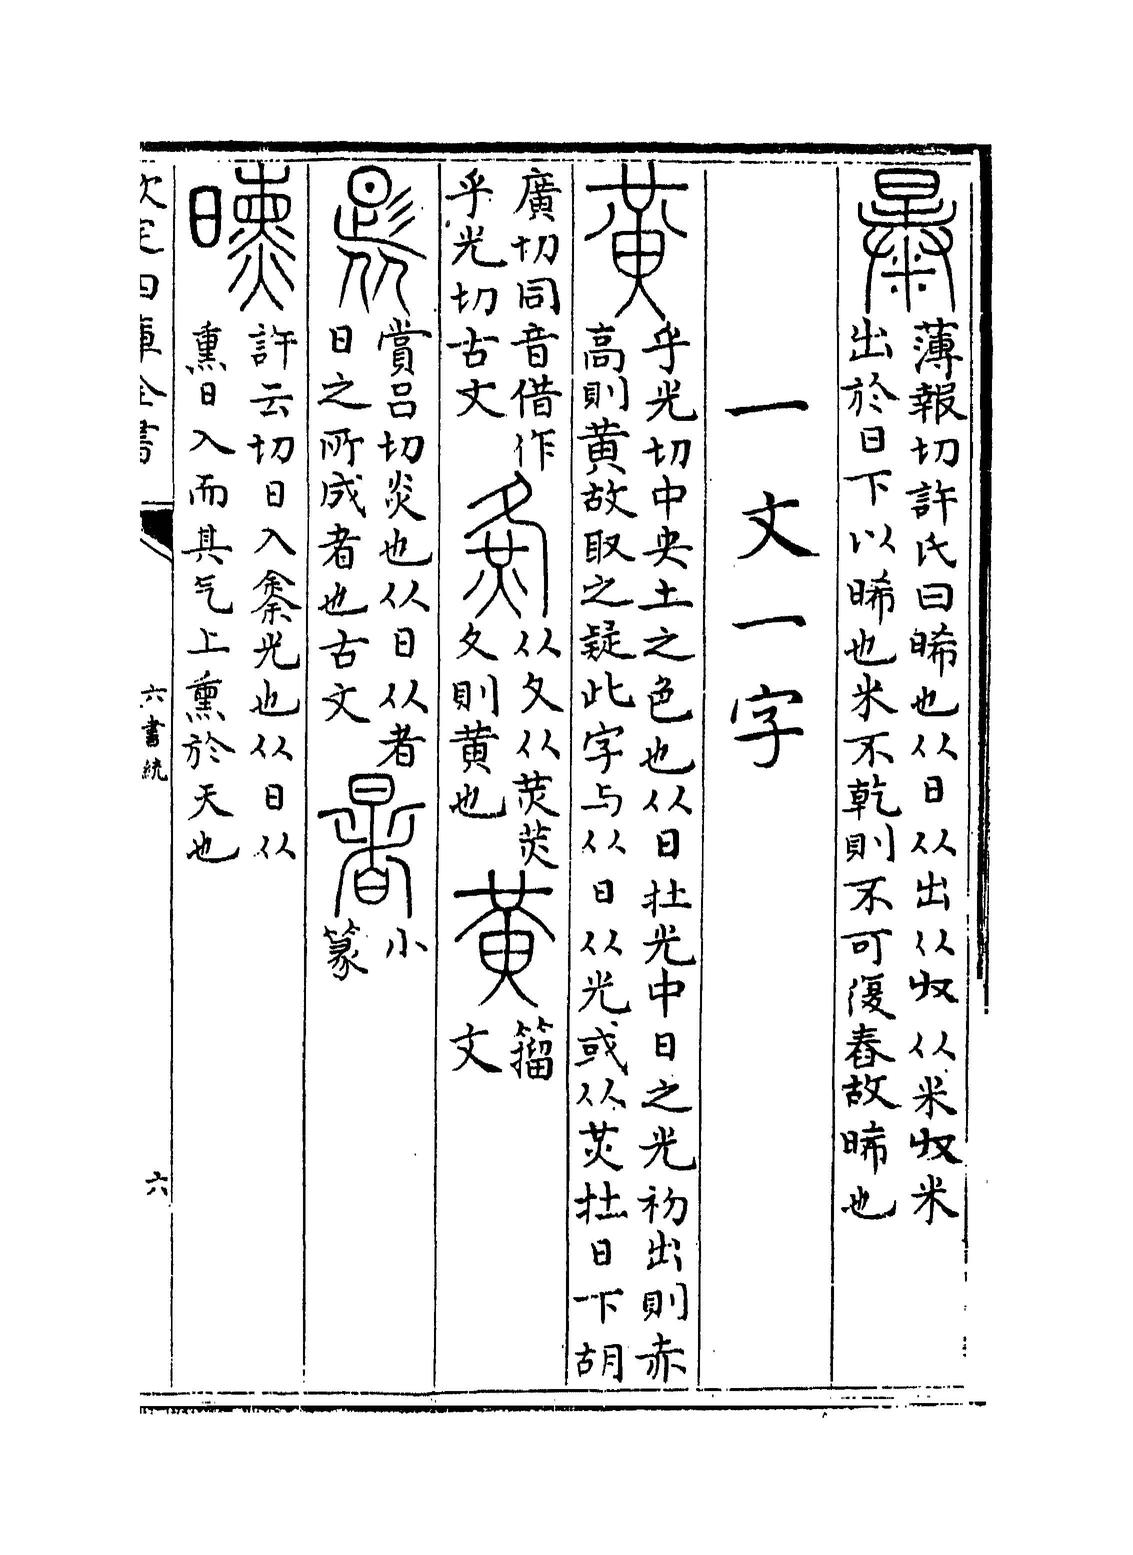 薄報切許氏曰晞也从日从出从収从米収米
出於日下以晞也米不乾則不可復舂故晞也
一文一字
黄
乎光切中央土之色也从日炗光中日之光初出則赤
高則黄故取之疑此字与从日从光或从炗炗日下胡
廣切同音借作
乎光切古文
从夊从炗炗
夊則黄也
黄
籀
文
賞呂切炎也从日从者
日之所成者也古文
暑
小
篆
許云切日入𤎅光也从日从
熏日入而其气上熏於天也
欽定四庫全書
六書統
六